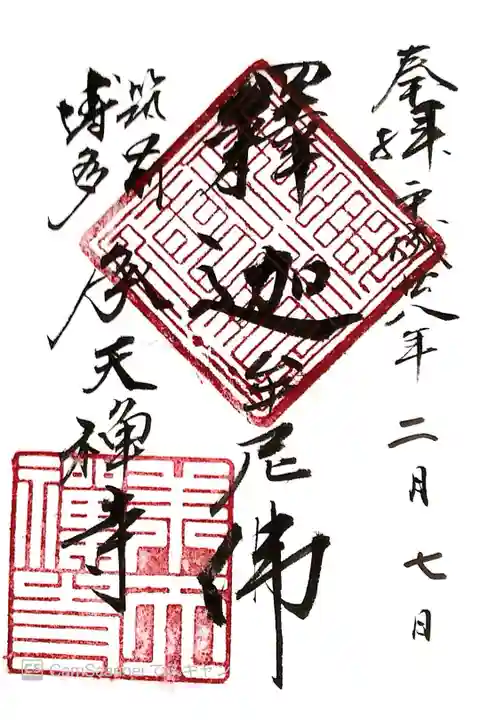 奉拝 平成廿八年 二月 七日
釋迦牟尼佛
筑前
博多
承天禅寺
承天禅寺
CamScanner でスキャン